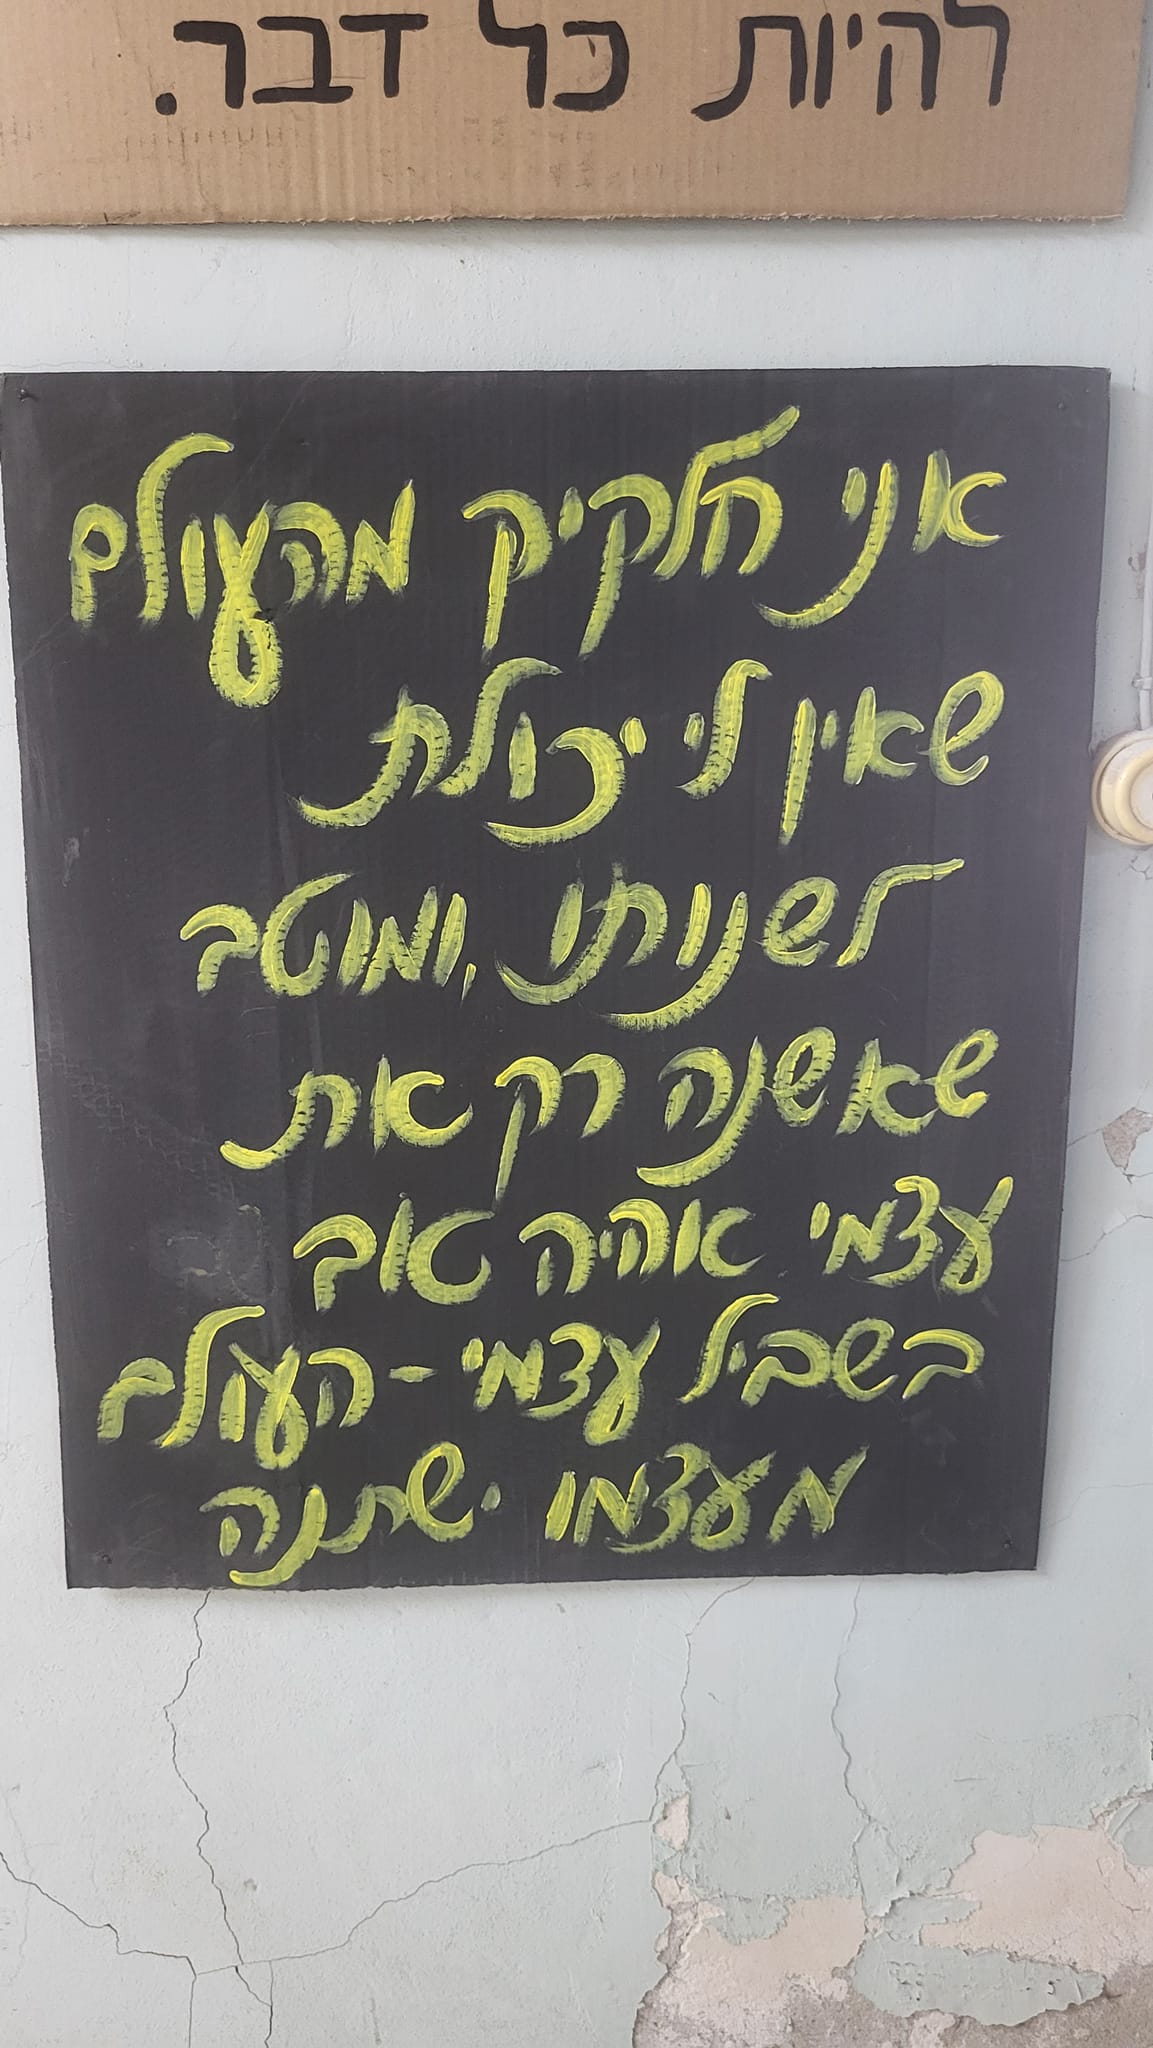 להיות כל דבר.
אני חלקיק מהעולם
שאין לי יכולת
לשנותו, ומוטב
שאשנה רק את
עצמי אהיה טוב
בשביל עצמי - העולם
מעצמו ישתנה